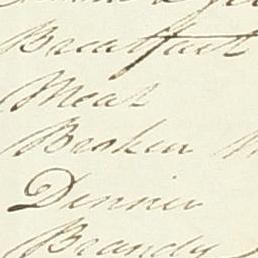 Breakfast
Meat
Broken
Dinner
Brandy